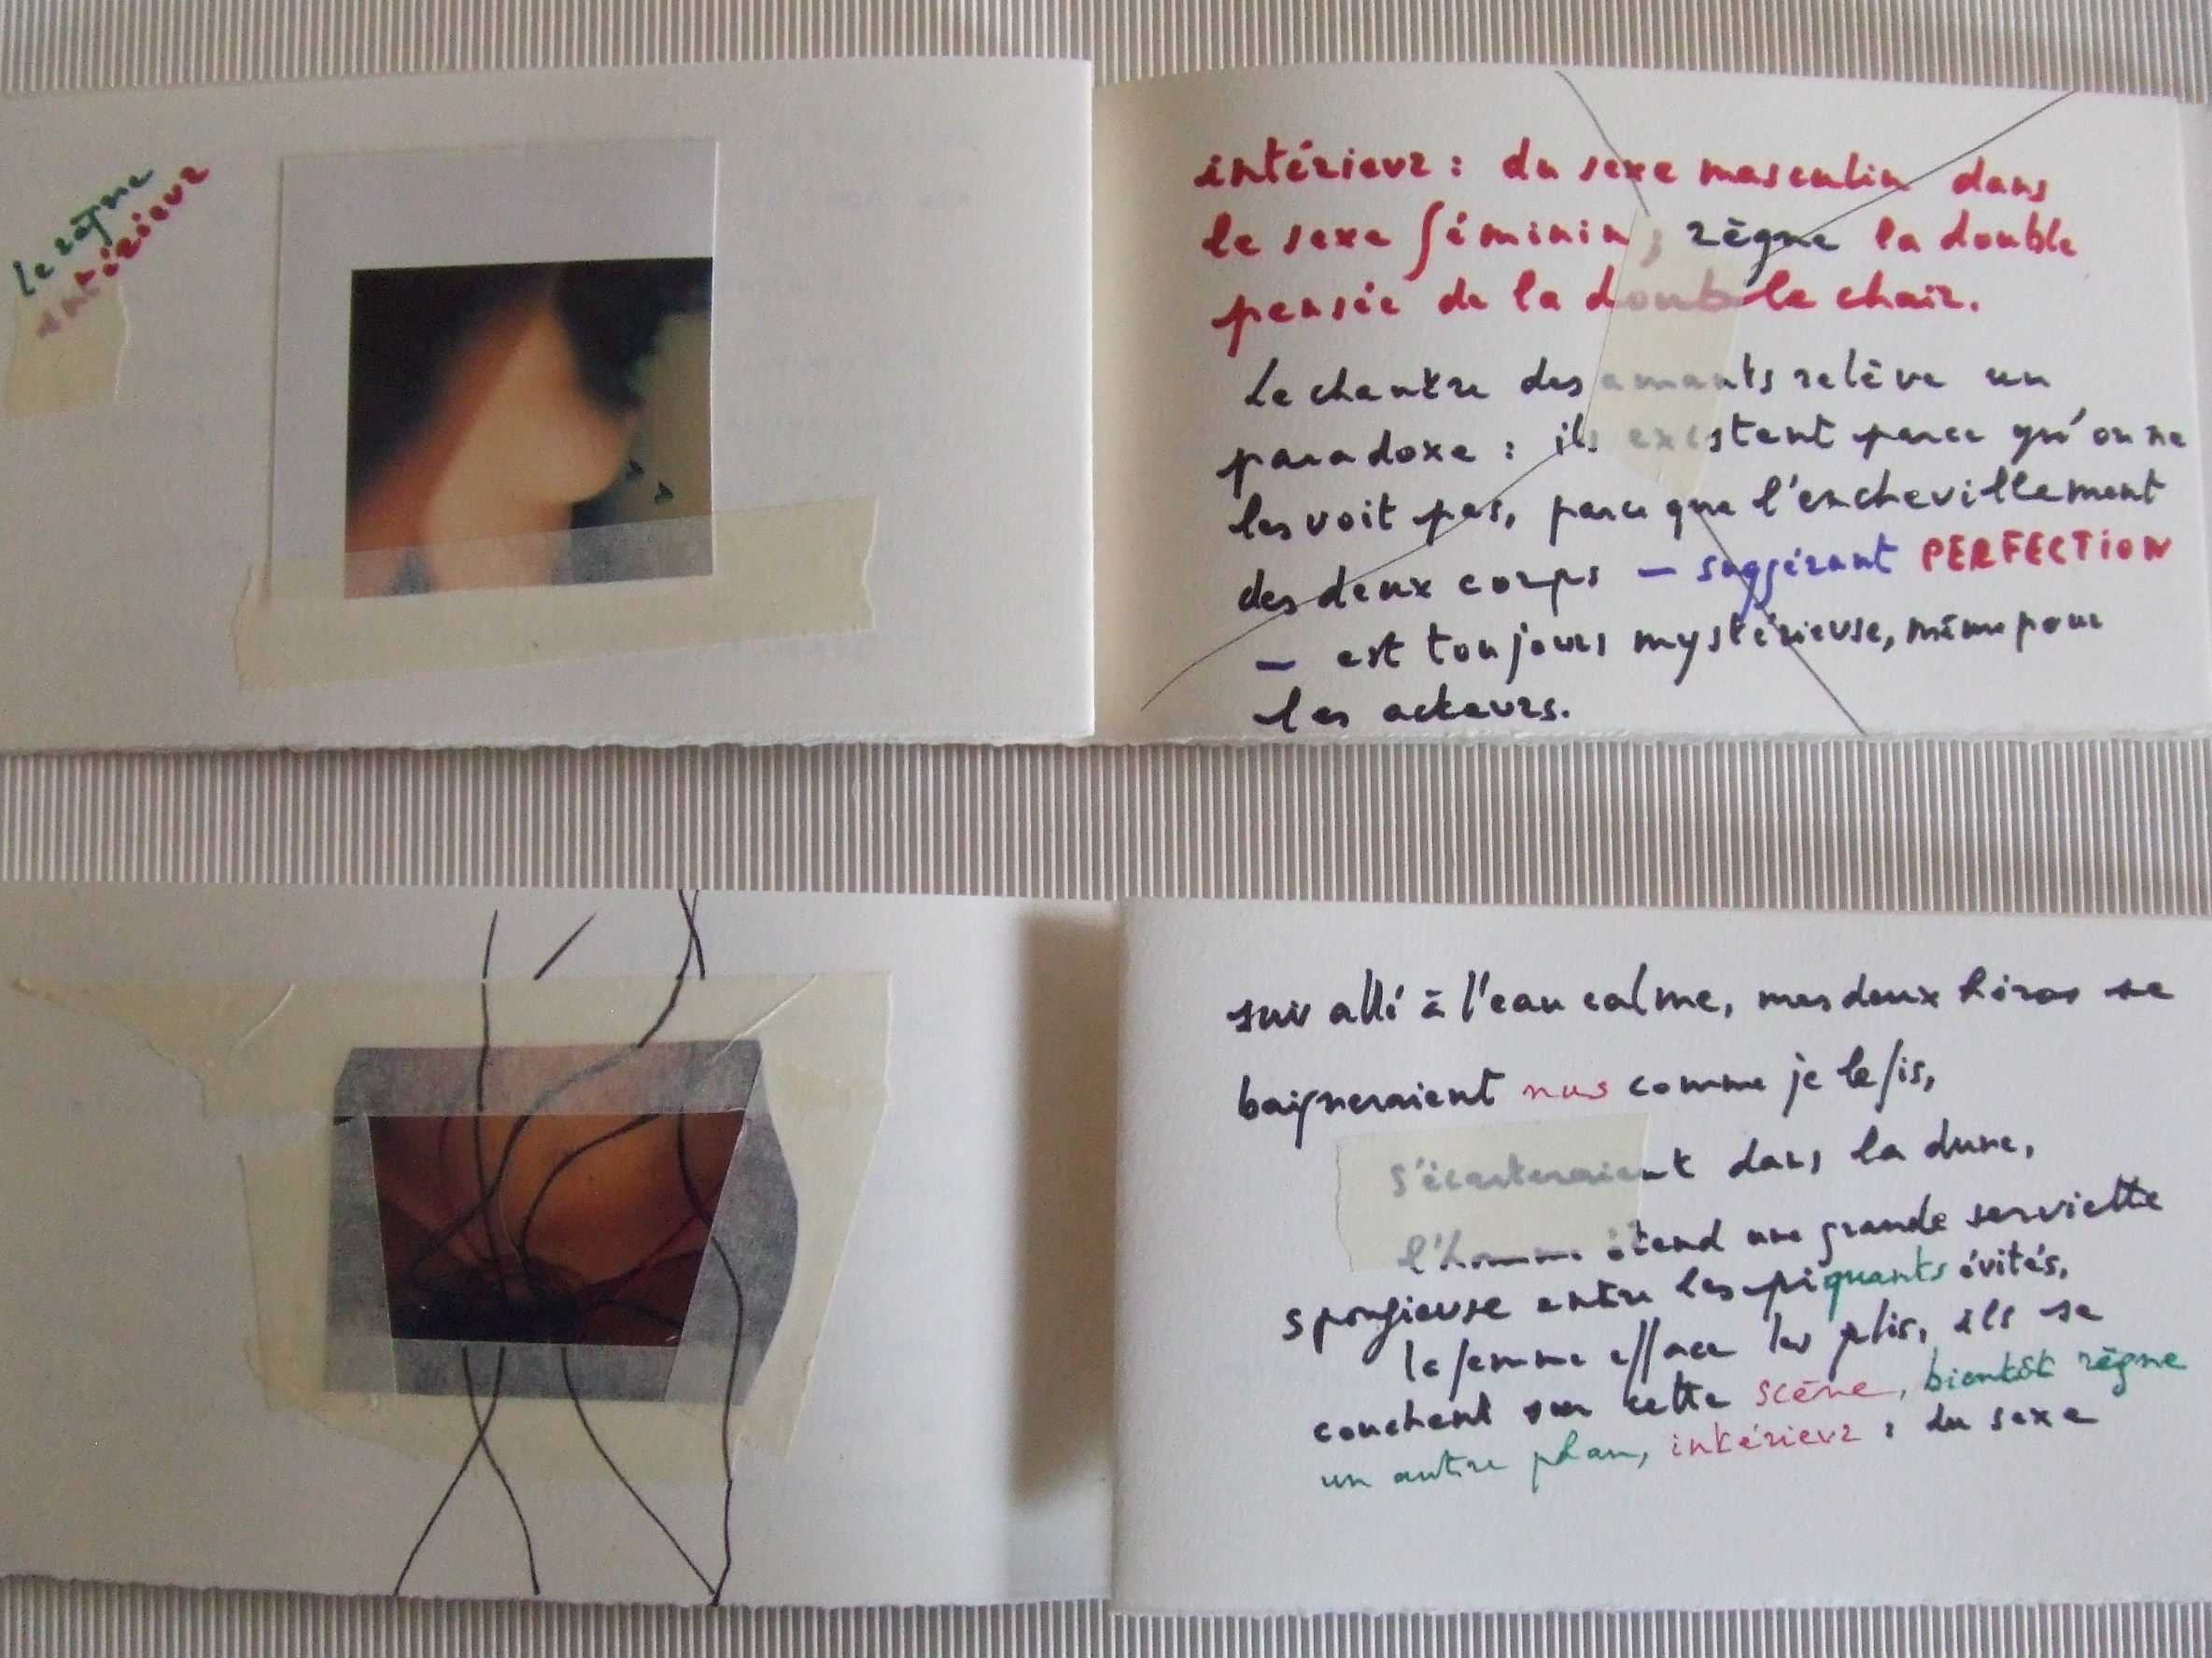 le règne
intérieur
intérieur : du sexe masculin dans
le sexe féminin, règne la double
pensée de la double chair.
Le chantre des amants relève un
paradoxe : ils existent parce qu'on ne
les voit pas, parce que l'enchevillement
des deux corps — suggérant PERFECTION
— est toujours mystérieuse, même pour
les acteurs.
suis allé à l'eau calme, mes deux héros se
baigneraient nus comme je le fis,
s'écarteraient dans la dune,
l'homme étend une grande serviette
spongieuse entre les piquants évités,
la femme efface les plis, ils se
couchent sur cette scène, bientôt règne
un autre plan, intérieur : du sexe